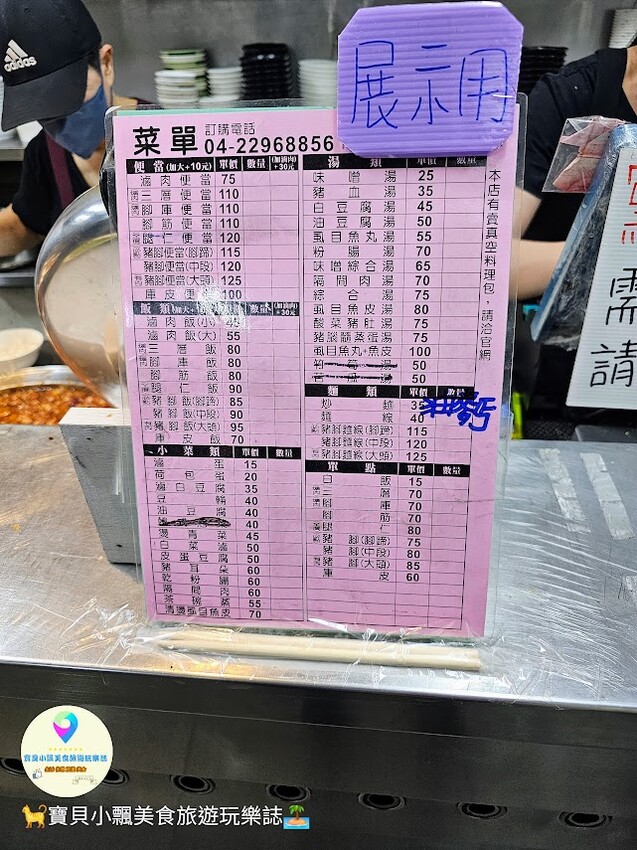 展示用
菜單 訂購電話
04-22968856
便當(加大+10元) 單價 數量 (加滷肉)+30元
滷肉便當 75
三層便當 110
腳庫便當 110
腳筋便當 110
腿仁便當 120
豬腳便當(腳蹄) 115
豬腳便當(中段) 120
豬腳便當(大頭) 125
庫皮便當 100
飯類
滷肉飯(小) 45
滷肉飯(大) 55
三層飯 80
腳庫飯 80
腳筋飯 80
腿仁飯 90
豬腳飯(腳蹄) 85
豬腳飯(中段) 90
豬腳飯(大頭) 95
庫皮飯 70
小菜類 單價 數量
滷蛋 15
荷包蛋 20
滷白豆腐 35
豆 40
油豆腐 40
40
燙青菜 45
白菜滷 50
皮蛋豆腐 50
豬耳朵 60
乾粉腸 60
隔間肉 60
茶碗蒸 55
清燙虱目魚皮 70
湯類 單價 數量
味噌湯 25
豬血湯 35
白豆腐湯 45
油豆腐湯 50
虱目魚丸湯 55
粉腸湯 70
味噌綜合湯 65
隔間肉湯 70
綜合湯 75
虱目魚皮湯 80
酸菜豬肚湯 75
豬腦髓蒸蛋湯 75
虱目魚丸+魚皮 100
竹筍湯 50
苦瓜湯 50
麵類 單價 數量
炒麵 35
麵線 40
豬腳麵線(腳蹄) 115
豬腳麵線(中段) 120
豬腳麵線(大頭) 125
單點 單價 數量
白飯 15
三層 70
腳庫 70
腳筋 70
腿仁 80
豬腳(腳蹄) 75
豬腳(中段) 80
豬腳(大頭) 85
庫皮 60
本店有賣真空料理包，請洽官網
需
請
adidas
寶貝小飄美食旅遊玩樂誌
寶貝小飄美食旅遊玩樂誌